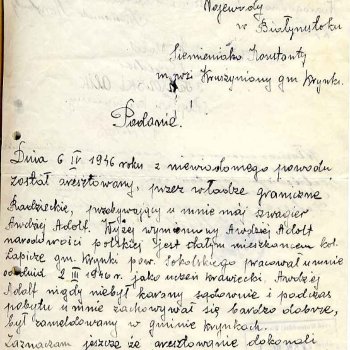 Wojewody
w Białymstoku
Siemieniako Konstanty
m. wsi Kruszyniany gm Krynki.
Podanie.
Dnia 6 IV. 1946 roku z niewiadomego powodu
został aresztowany, przez władze graniczne
Radzieckie, przebywający u mnie mój szwagier
Awdziej Adolf. Wyżej wymieniony Awdziej Adolf
narodowości polskiej jest stałym mieszkańcem kol.
Łapicze gm. Krynki pow. Sokólskiego pracował u mnie
od dnia 2 III 1946 r. jako uczeń krawiecki. Awdziej
Adolf nigdy niebył karany sądownie i podczas
pobytu u mnie zachowywał się bardzo dobrze,
był zameldowany w gminie Krynkach.
Zaznaczam jeszcze że aresztowanie dokonali